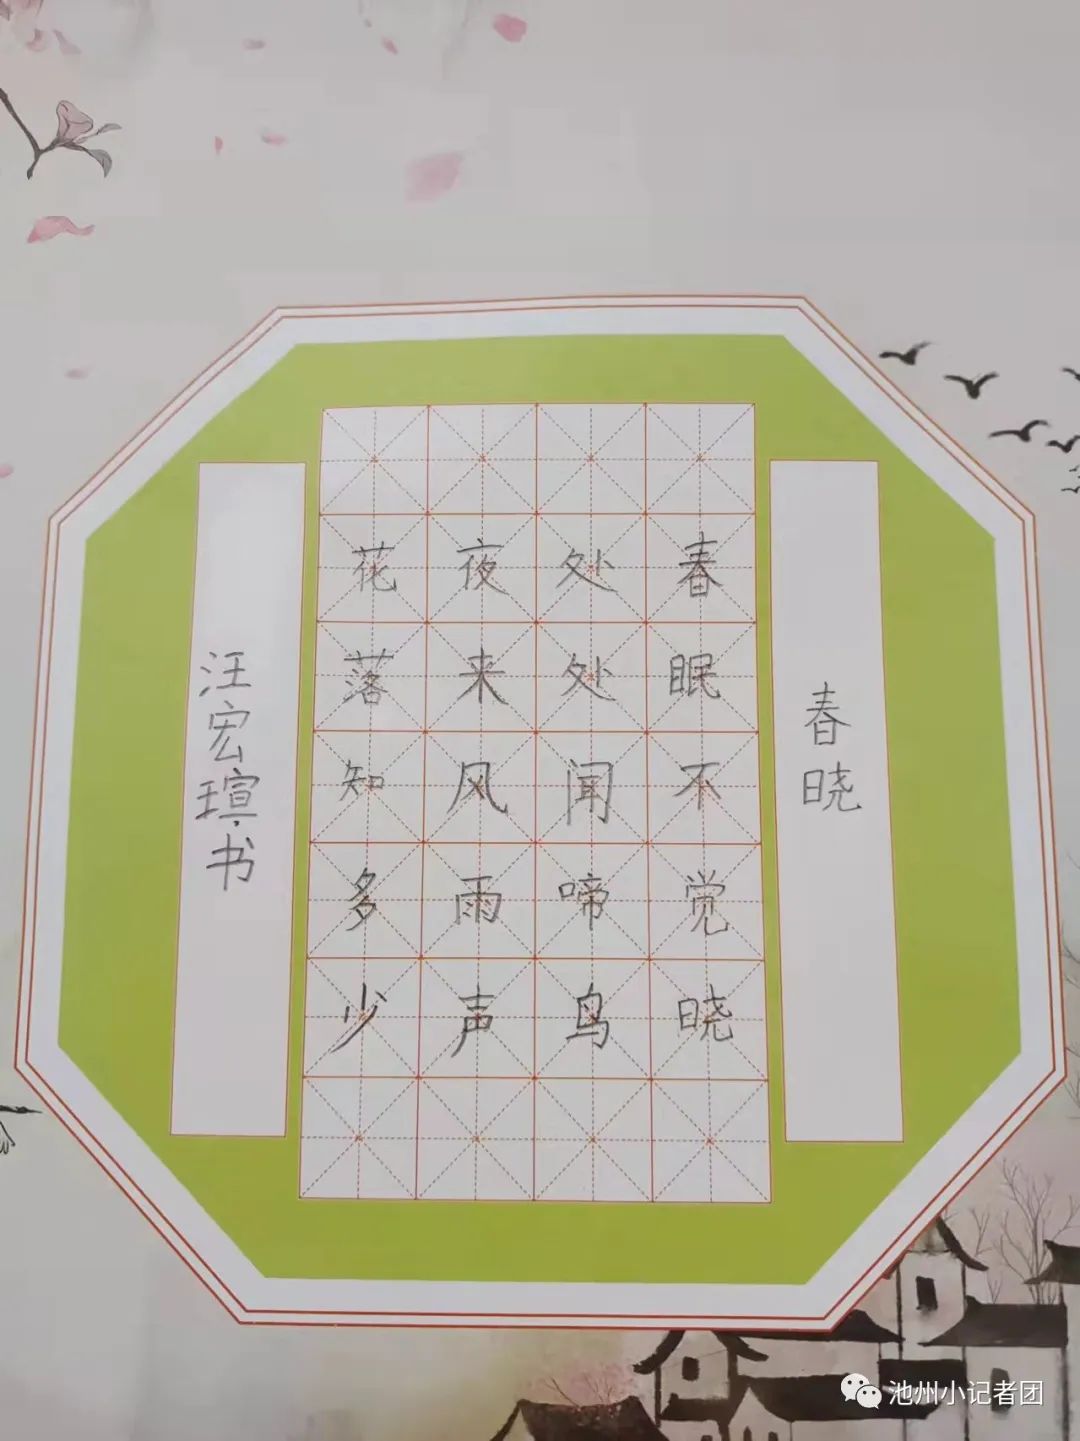 春晓
春眠不觉晓
处处闻啼鸟
夜来风雨声
花落知多少
汪宏瑄书
池州小记者团